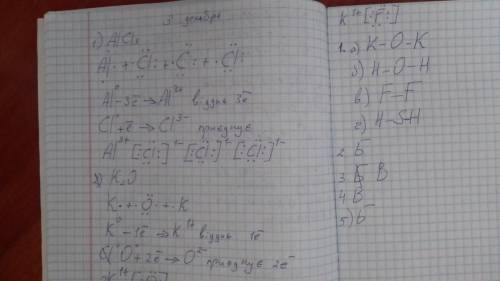 3 декабря
1) AlCl₃
Al· + ·Cl: + ·Cl: + ·Cl:
Al⁰ - 3ē → Al³⁺ віддає 3ē
Cl⁰ + ē → Cl³⁻ приєднує
Al³⁺ [:Cl:]¹⁻ [:Cl:]¹⁻ [:Cl:]¹⁻
2) K₂O
K· + ·O· + ·K
K⁰ - 1ē → K¹⁺ віддає 1ē
O⁰ + 2ē → O²⁻ приєднує 2ē
K¹⁺ [:F:]
1. а) K-O-K
б) H-O-H
в) F-F
г) H-S-H
2. Б
3. В
4. В
5) Б